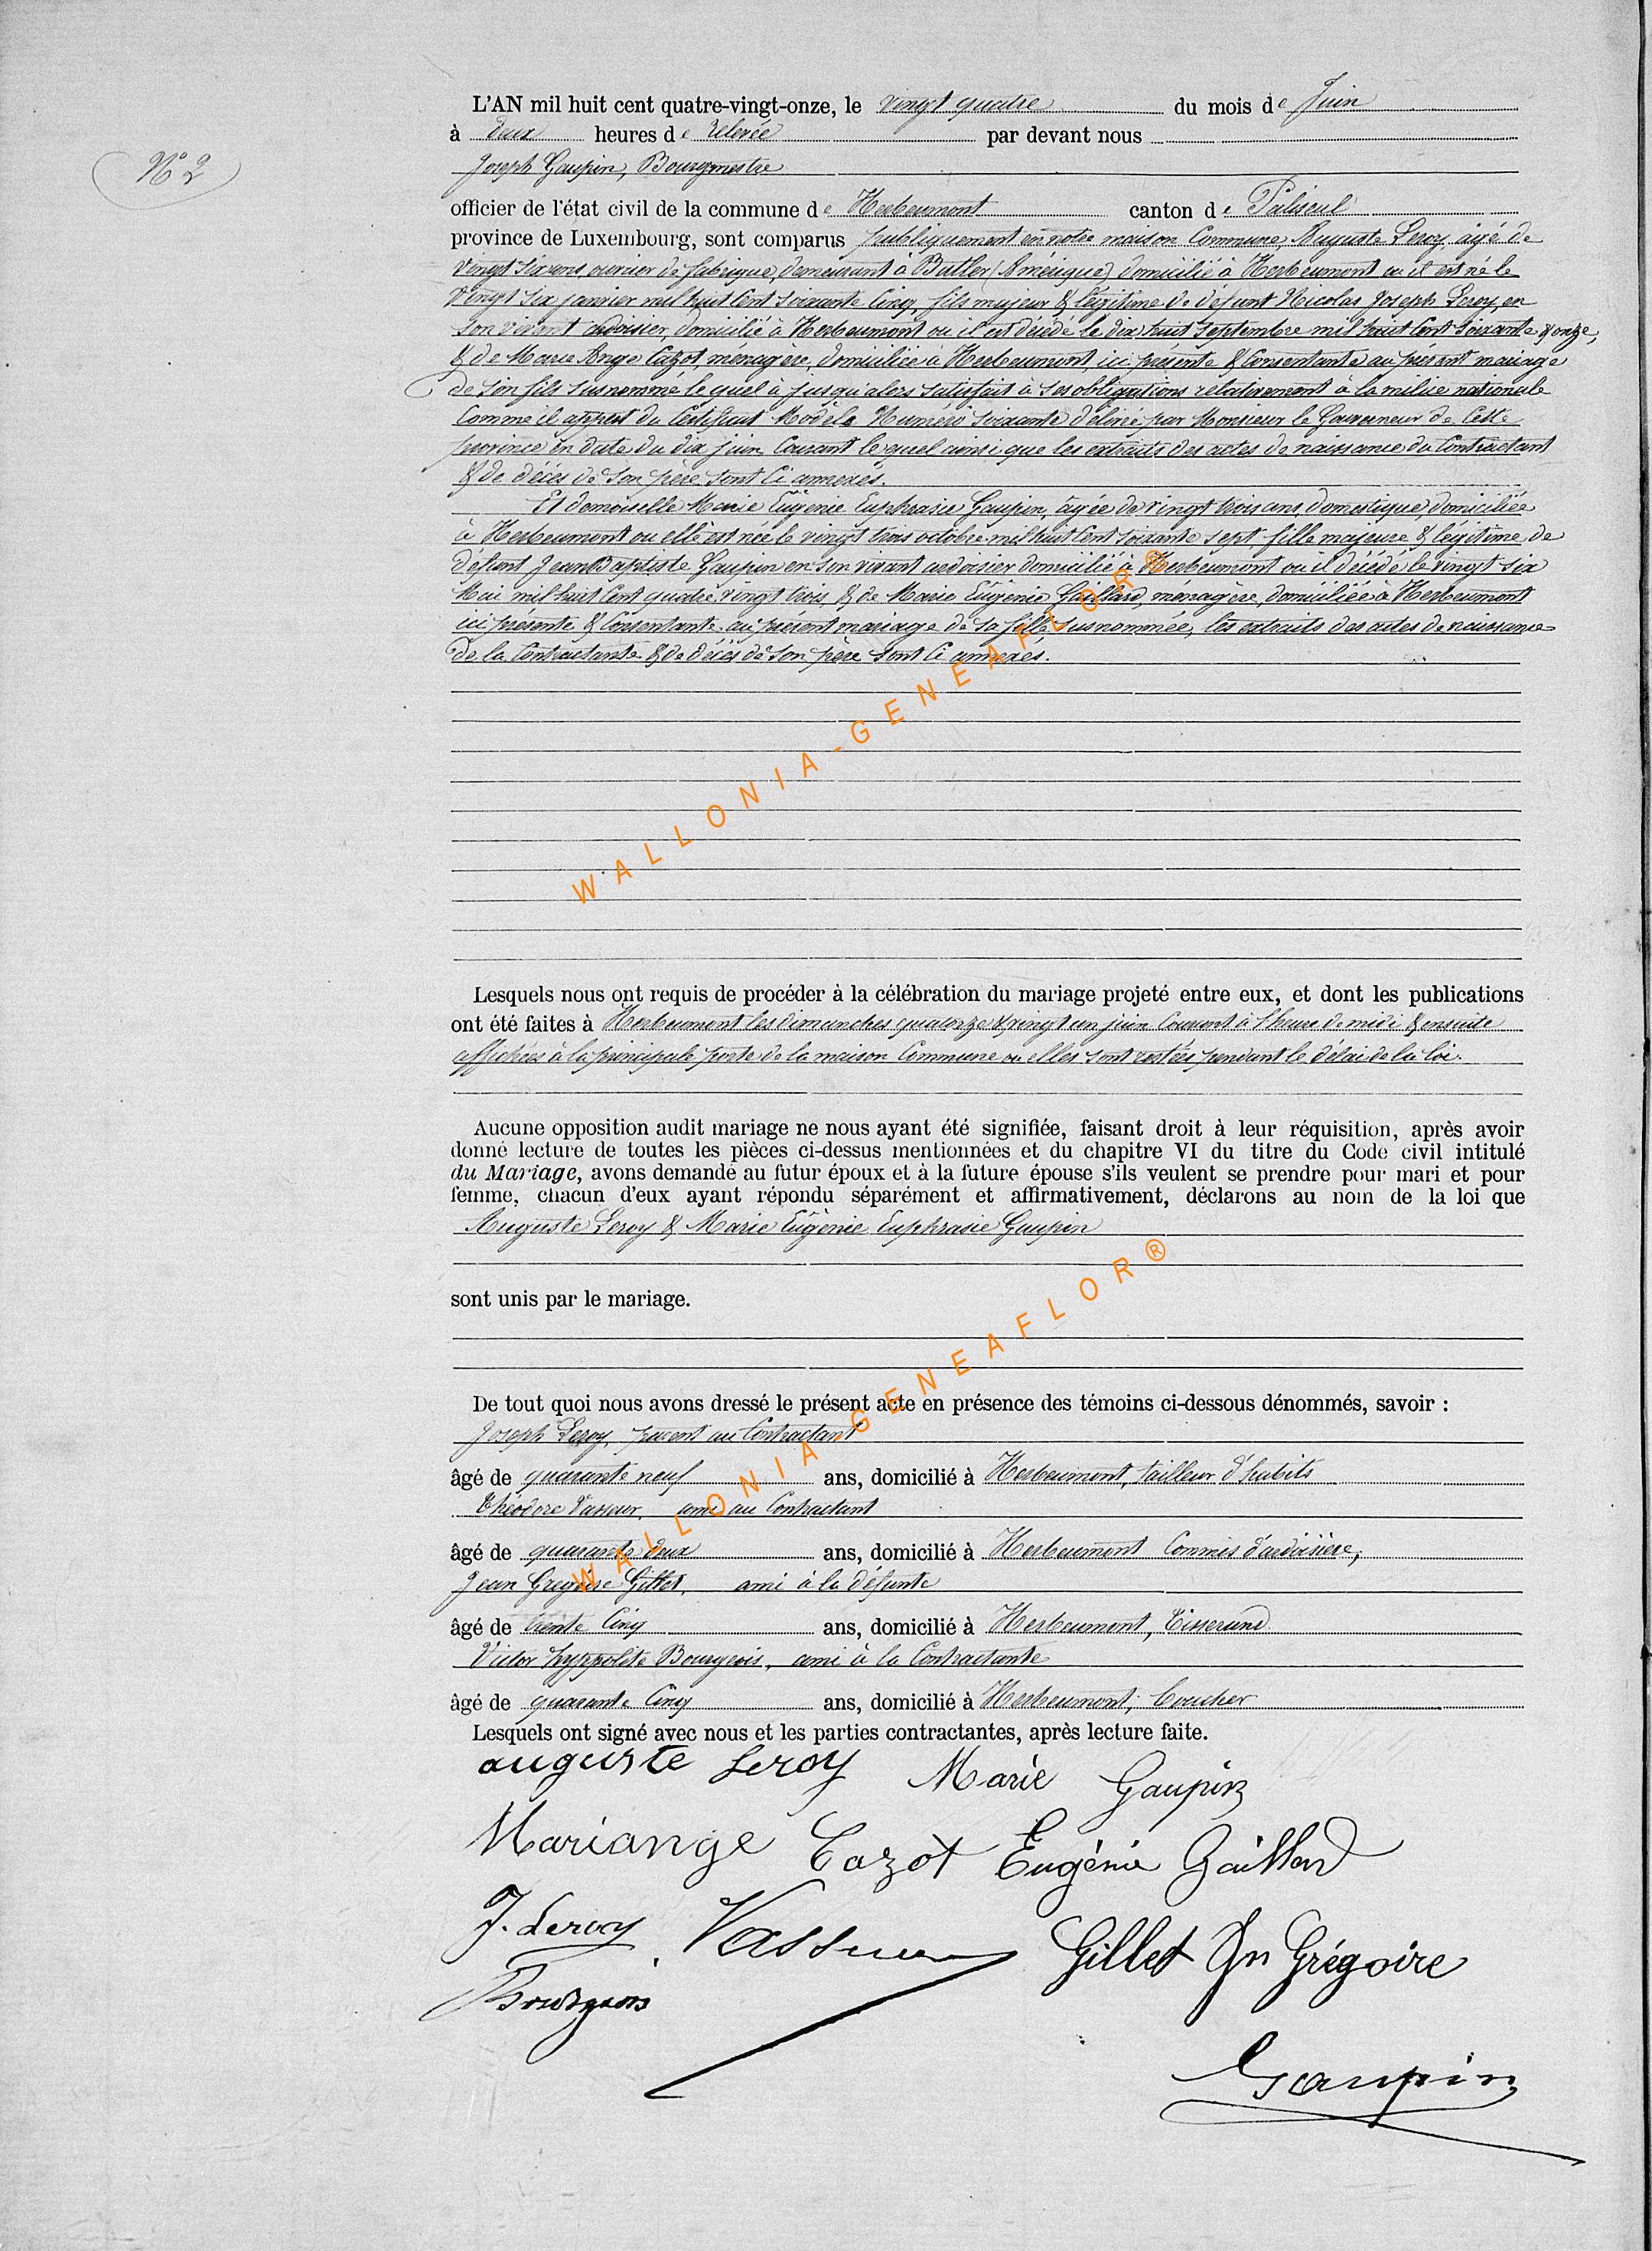 L'AN mil huit cent quatre-vingt-onze, le vingt quatre du mois de Juin
à deux heures de relevée par devant nous
N° 2
Joseph Gaupin, Bourgmestre
officier de l'état civil de la commune de Herbeumont canton de Paliseul
province de Luxembourg, sont comparus publiquement en notre maison Commune, Auguste Leroy, âgé de
vingt six ans, ouvrier de fabrique, demeurant à Butler (Amérique) domicilié à Herbeumont ou il est né le
vingt six janvier mil huit Cent soixante Cinq, fils majeur & légitime de défunt Nicolas Joseph Leroy, en
son vivant ardoisier, domicilié à Herbeumont ou il est décédé le dix huit Septembre mil huit Cent soixante & onze,
& de Marie Ange Cazot, ménagère, domiciliée à Herbeumont, ici présente & Consentante au présent mariage
de son fils susnommé le quel à jusqu'alors satisfait à ses obligations relativement à la milice nationale
Comme il appert du Certificat Modèle Numéro soixante délivré par Monsieur le Gouverneur de Cette
province en date du dix juin Courant le quel ainsi que les extraits des actes de naissance du Contractant
& de décès de son père sont Ci annexés.
Et demoiselle Marie Eugénie Euphrasie Gaupin, âgée de vingt trois ans, domestique, domiciliée
à Herbeumont ou elle est née le vingt trois octobre mil huit Cent soixante sept fille majeure & légitime de
défunt Jean Baptiste Gaupin en son vivant ardoisier domicilié à Herbeumont ou il décédé le vingt six
Mai mil huit Cent quatre vingt trois, & de Marie Eugénie Gaillard, ménagère, domiciliée à Herbeumont
ici présente & Consentante au présent mariage de sa fille susnommée, les extraits des actes de naissance
de la Contractante & de décès de son père sont Ci annexés.
WALLONIA-GENEAFLOR®
Lesquels nous ont requis de procéder à la célébration du mariage projeté entre eux, et dont les publications
ont été faites à Herbeumont les dimanches quatorze & vingt un juin Courant à l'heure de midi & ensuite
affichées à la principale porte de la maison Commune ou elles sont restées pendant le délai de la loi.
Aucune opposition audit mariage ne nous ayant été signifiée, faisant droit à leur réquisition, après avoir
donné lecture de toutes les pièces ci-dessus mentionnées et du chapitre VI du titre du Code civil intitulé
du Mariage, avons demandé au futur époux et à la future épouse s'ils veulent se prendre pour mari et pour
femme, chacun d'eux ayant répondu séparément et affirmativement, déclarons au nom de la loi que
Auguste Leroy & Marie Eugénie Euphrasie Gaupin
sont unis par le mariage.
WALLONIA-GENEAFLOR®
De tout quoi nous avons dressé le présent acte en présence des témoins ci-dessous dénommés, savoir :
Joseph Leroy, parent au Contractant
âgé de quarante neuf ans, domicilié à Herbeumont, tailleur d'habits
Théodore Vasseur, ami au Contractant
âgé de quarante deux ans, domicilié à Herbeumont Commis d'ardoisière,
Jean Gregoire Gillet, ami à la défunte
âgé de trente Cinq ans, domicilié à Herbeumont, Tisserand
Victor hyppolite Bourgeois, ami à la Contractante
âgé de quarante Cinq ans, domicilié à Herbeumont, Boucher
Lesquels ont signé avec nous et les parties contractantes, après lecture faite.
auguste Leroy Marie Gaupin
Mariange Cazot Eugénie Gaillard
J. Leroy Vasseur Gillet Jn Grégoire
Bourgeois
Gaupin